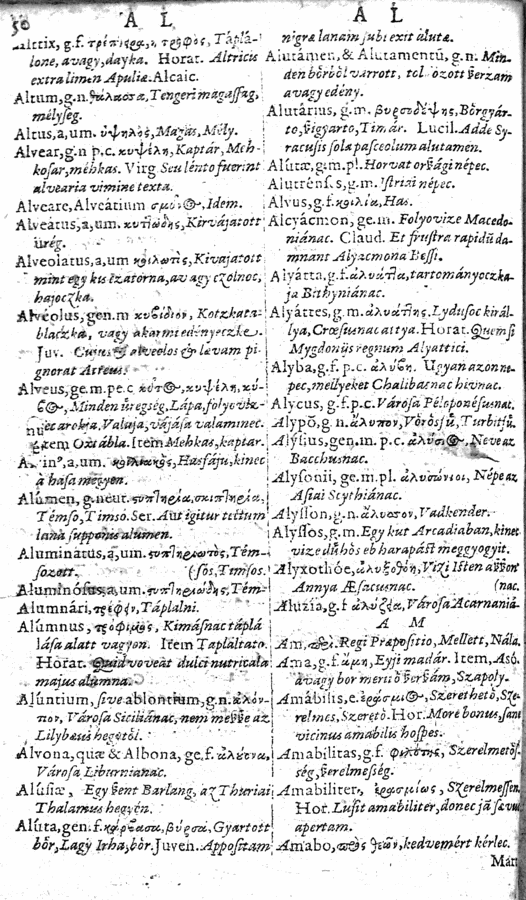 50
A L
Altrix, g.f. τρέπειρα, ἡ τροφὸς, Táplá-
lone, avagy, dayka. Horat. Altricis
extra limen Apuliæ. Alcaic.
Altum, g.n. θάλασσα, Tengeri magassag,
mélyseg.
Altus, a, um. ὑψηλὸς, Magas, Mély.
Alvear, g.n p.c. κυψέλη, Kaptár, Méh-
kosar, méhkas. Virg Seu lento fuerint
alvearia vimine texta.
Alveare, Alveatium Idem.
Alveatus, a, um. Kirvájatott
üreg.
Alveolatus, a, um Kivajatott
mint egy kis czatorna, avagy czolnoc,
hajoczka.
Alveolus, gen.m κυβίδιον, Kotzkata-
blaczka, vagy akarmi edényeczke.
Juv. alveolos & lævam pi-
gnorat Atreus.
Alveus, ge.m. pe.c κυψέλη,
Minden üregség, Lápa, folyoviz-
nec arokja, Valuja, vájása valaminec.
Item Ostábla. Item Mehkas, kaptar.
Hasfáju, kinec
à hasa megyen.
Alúmen, g.neut. στυπτηρία,
Témso, Timso. Ser. Aut igitur tectum
lanâ supponis alumen.
Aluminatus, a, um. Tém-
sozott. (sos, Timsos.
Aluminósus, a, um. Tém-
Alumnári, τρέφειν, Táplalni.
Alúmnus, τρόφιμος, Kimásnac táplá
lása alatt vagyon. Item Taplaltato.
Horat. Quid voveat dulci nutricula
majus alumna.
Alúntium, sive ablontium, g.n.
Városa Siciliánac, nem meßße az
Lilybæus hegyétöl.
Alvona, quæ & Albona, ge.f.
Városa Liburnianac.
Alúsiæ, Egy ßent Barlang, az Thuriai
Thalamus hegyen.
Alúta, gen.f. βύρσα, Gyartott
bőr, Lagy Irha, bőr. Juven. Appositam
A L
nigræ lanam subtexit alutæ.
Alutámen, & Alutamentũ, g.n. Min-
den bőrből varrott, tol ozott ßerzam
avagy edény.
Alutárius, g.m. βυρσοδέψης, Börgyár-
to, ßigyarto, Timár. Lucil. Adde Sy-
racusis sola pasceolum alutamen.
Alútæ, g.m.pl. Horvat orßági népec.
Alutrénses, g.m. Istriai népec.
Alvus, g.f. κοιλία, Has.
Alcyácmon, ge.m. Folyovize Macedo-
niánac. Claud. Et frustra rapidũ da-
mnant Alyacmona Bessi.
Alyátta, g.f. tartományoczka-
ja Bithyniánac.
Alyáttes, g.m. ἀλυάττης, Lydusoc királ-
lya, Crœsusnac attya. Horat. Quem si
Mygdoniis regnum Alyattici.
Alyba, g.f. p.c. ἀλύβη. Ugyan azonne-
pec, mellyeket Chalibusnac hivnac.
Alycus, g.f. p.c. Városa Péleponésusnac.
Alypõ, g.n. ἄλυπον, Vörös fũ, Turbitfũ.
Alýsius, gen.m. p.c. Neve az
Bacchusnac.
Alysonii, ge.m. pl. Népe az
Asiai Scythiánac.
Alysson, g.n. ἄλυσσον, Vadkender.
Alyssos, g.m. Egy kut Arcadiaban, kinec
vize dühös eb harapást meggyogyit.
Alyxothóe, ἀλυξοθόη, Vizi Isten aßßony
Annya Æsacusnac. (nac.
Aluzía, g.f ἀλυζία, Városa Acarnaniá-
A M
Am, Regi Præpositio, Mellett, Nála.
Ama, g.f. ἄμη, Eyji madár. Item, Asó,
avagy bor merítő ßerßám, Szapoly.
Amábilis, e. ἐράσμιος, Szeretbető, Sze-
relmes, Szeretö. Hor. More bonus, sanè
vicinus amabilis hospes.
Amabilitas, g.f. φιλότης, Szerelmetös-
ség, ßerelmesség.
Amabiliter, ἐρασμίως, Szerelmessen.
Hor. Lusit amabiliter, donec jã sævus
apertam.
Amabo, πρὸς θεῶν, kedvemért kérlec.
Mart